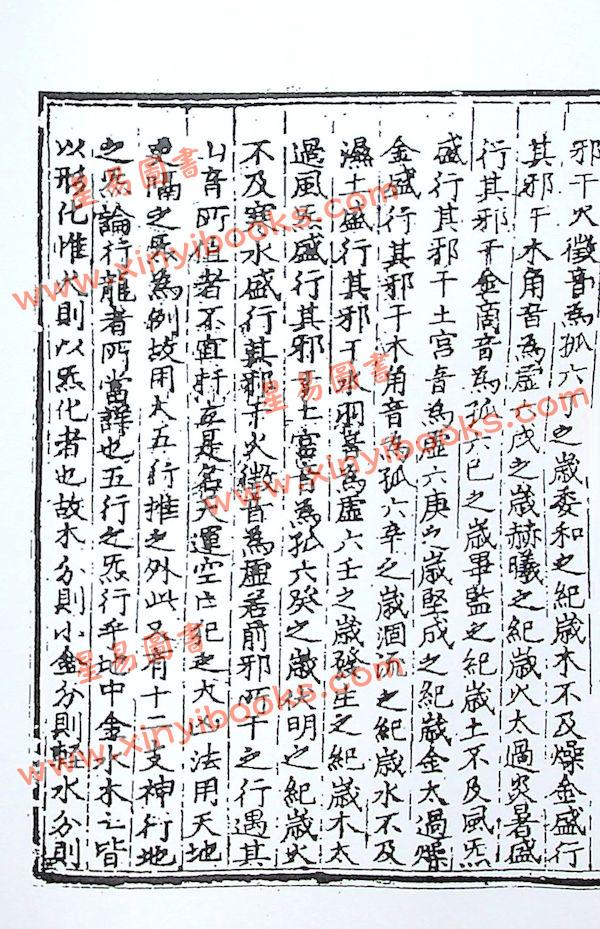 邪干火徵音爲孤六丁之歲委和之紀歲木不及燥金盛行
其邪干木角音爲虛六戊之歲赫曦之紀歲火太過炎暑盛
行其邪干金啇音爲孤六已之歲畢監之紀歲土不及風炁
盛行其邪干土宮音爲虛六庚之歲堅成之紀歲金太過燥
金盛行其邪干木角音爲孤六辛之歲涸流之紀歲水不及
濕土盛行其邪干水羽音爲虛六壬之歲發生之紀歲木太
過風炁盛行其邪干土宮音爲孤六癸之歲伏明之紀歲火
不及寒水盛行其邪干火徵音爲虛若前邪所干之行遇其
音所值者不宜軒立是名天運空亡犯之大凶法用天地
啇之炁爲例故用大五行推之外此又有十二支神行地
之炁論行龍者所當詳也五行之炁行乎地中金水木土皆
以形化惟火則以炁化者也故木分則小金分則輕水分則
星易圖書
www.xinyibooks.com
星易圖書
www.xinyibooks.com
星易圖書
www.xinyibooks.com